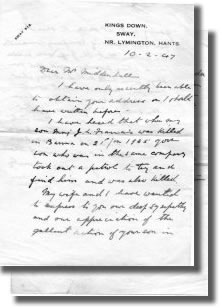 SWAY
KINGS DOWN,
SWAY,
NR. LYMINGTON, HANTS
10-2-47
Dear Mr
I have only recently been able
to obtain your address or I should
have written before.
I have heard that when my
son was killed
in Burma on your
son who was in the same company
took out a patrol to try and
find him and was also killed.
My wife and I have wanted
to express to you our deep sympathy
and our appreciation of the
gallant action of your son in